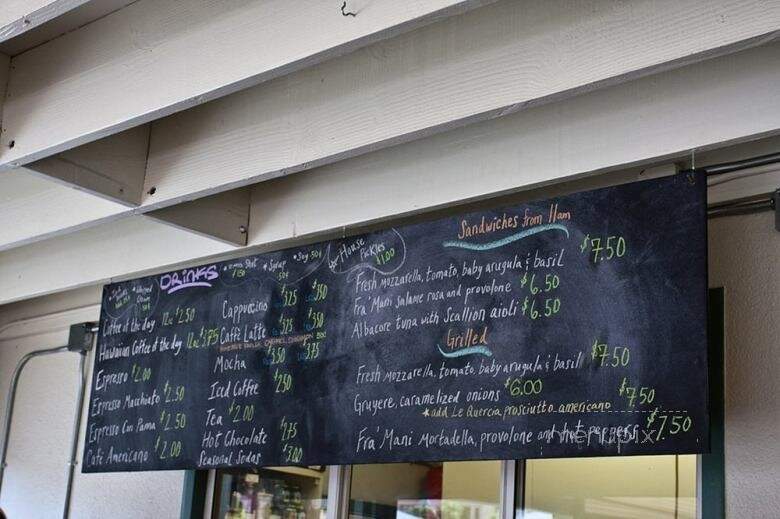 DRINKS
Syrup 50¢
Soy 50¢
House Pickles $1.00
Coffee of the day 12oz $2.50
Hawaiian Coffee of the day 12oz $3.75
Espresso $2.00
Espresso Macchiato $2.50
Espresso Con Pana $2.50
Café Americano $2.00
Cappuccino $3.25 $3.50
Caffé Latte $3.25 $3.50
Mocha $3.50 $3.75
Iced Coffee $2.50
Tea $2.00
Hot Chocolate
Seasonal Sodas $3.00
Sandwiches from 11am
Fresh mozzarella, tomato, baby arugula & basil $7.50
Fra' Mani salame rosa and provolone $6.50
Albacore tuna with scallion aioli $6.50
Grilled
Fresh mozzarella, tomato, baby arugula & basil $7.50
Gruyere, caramelized onions $6.00
*add Le Quercia prosciutto americano $7.50
Fra' Mani Mortadella, provolone and hot peppers $7.50
menupix